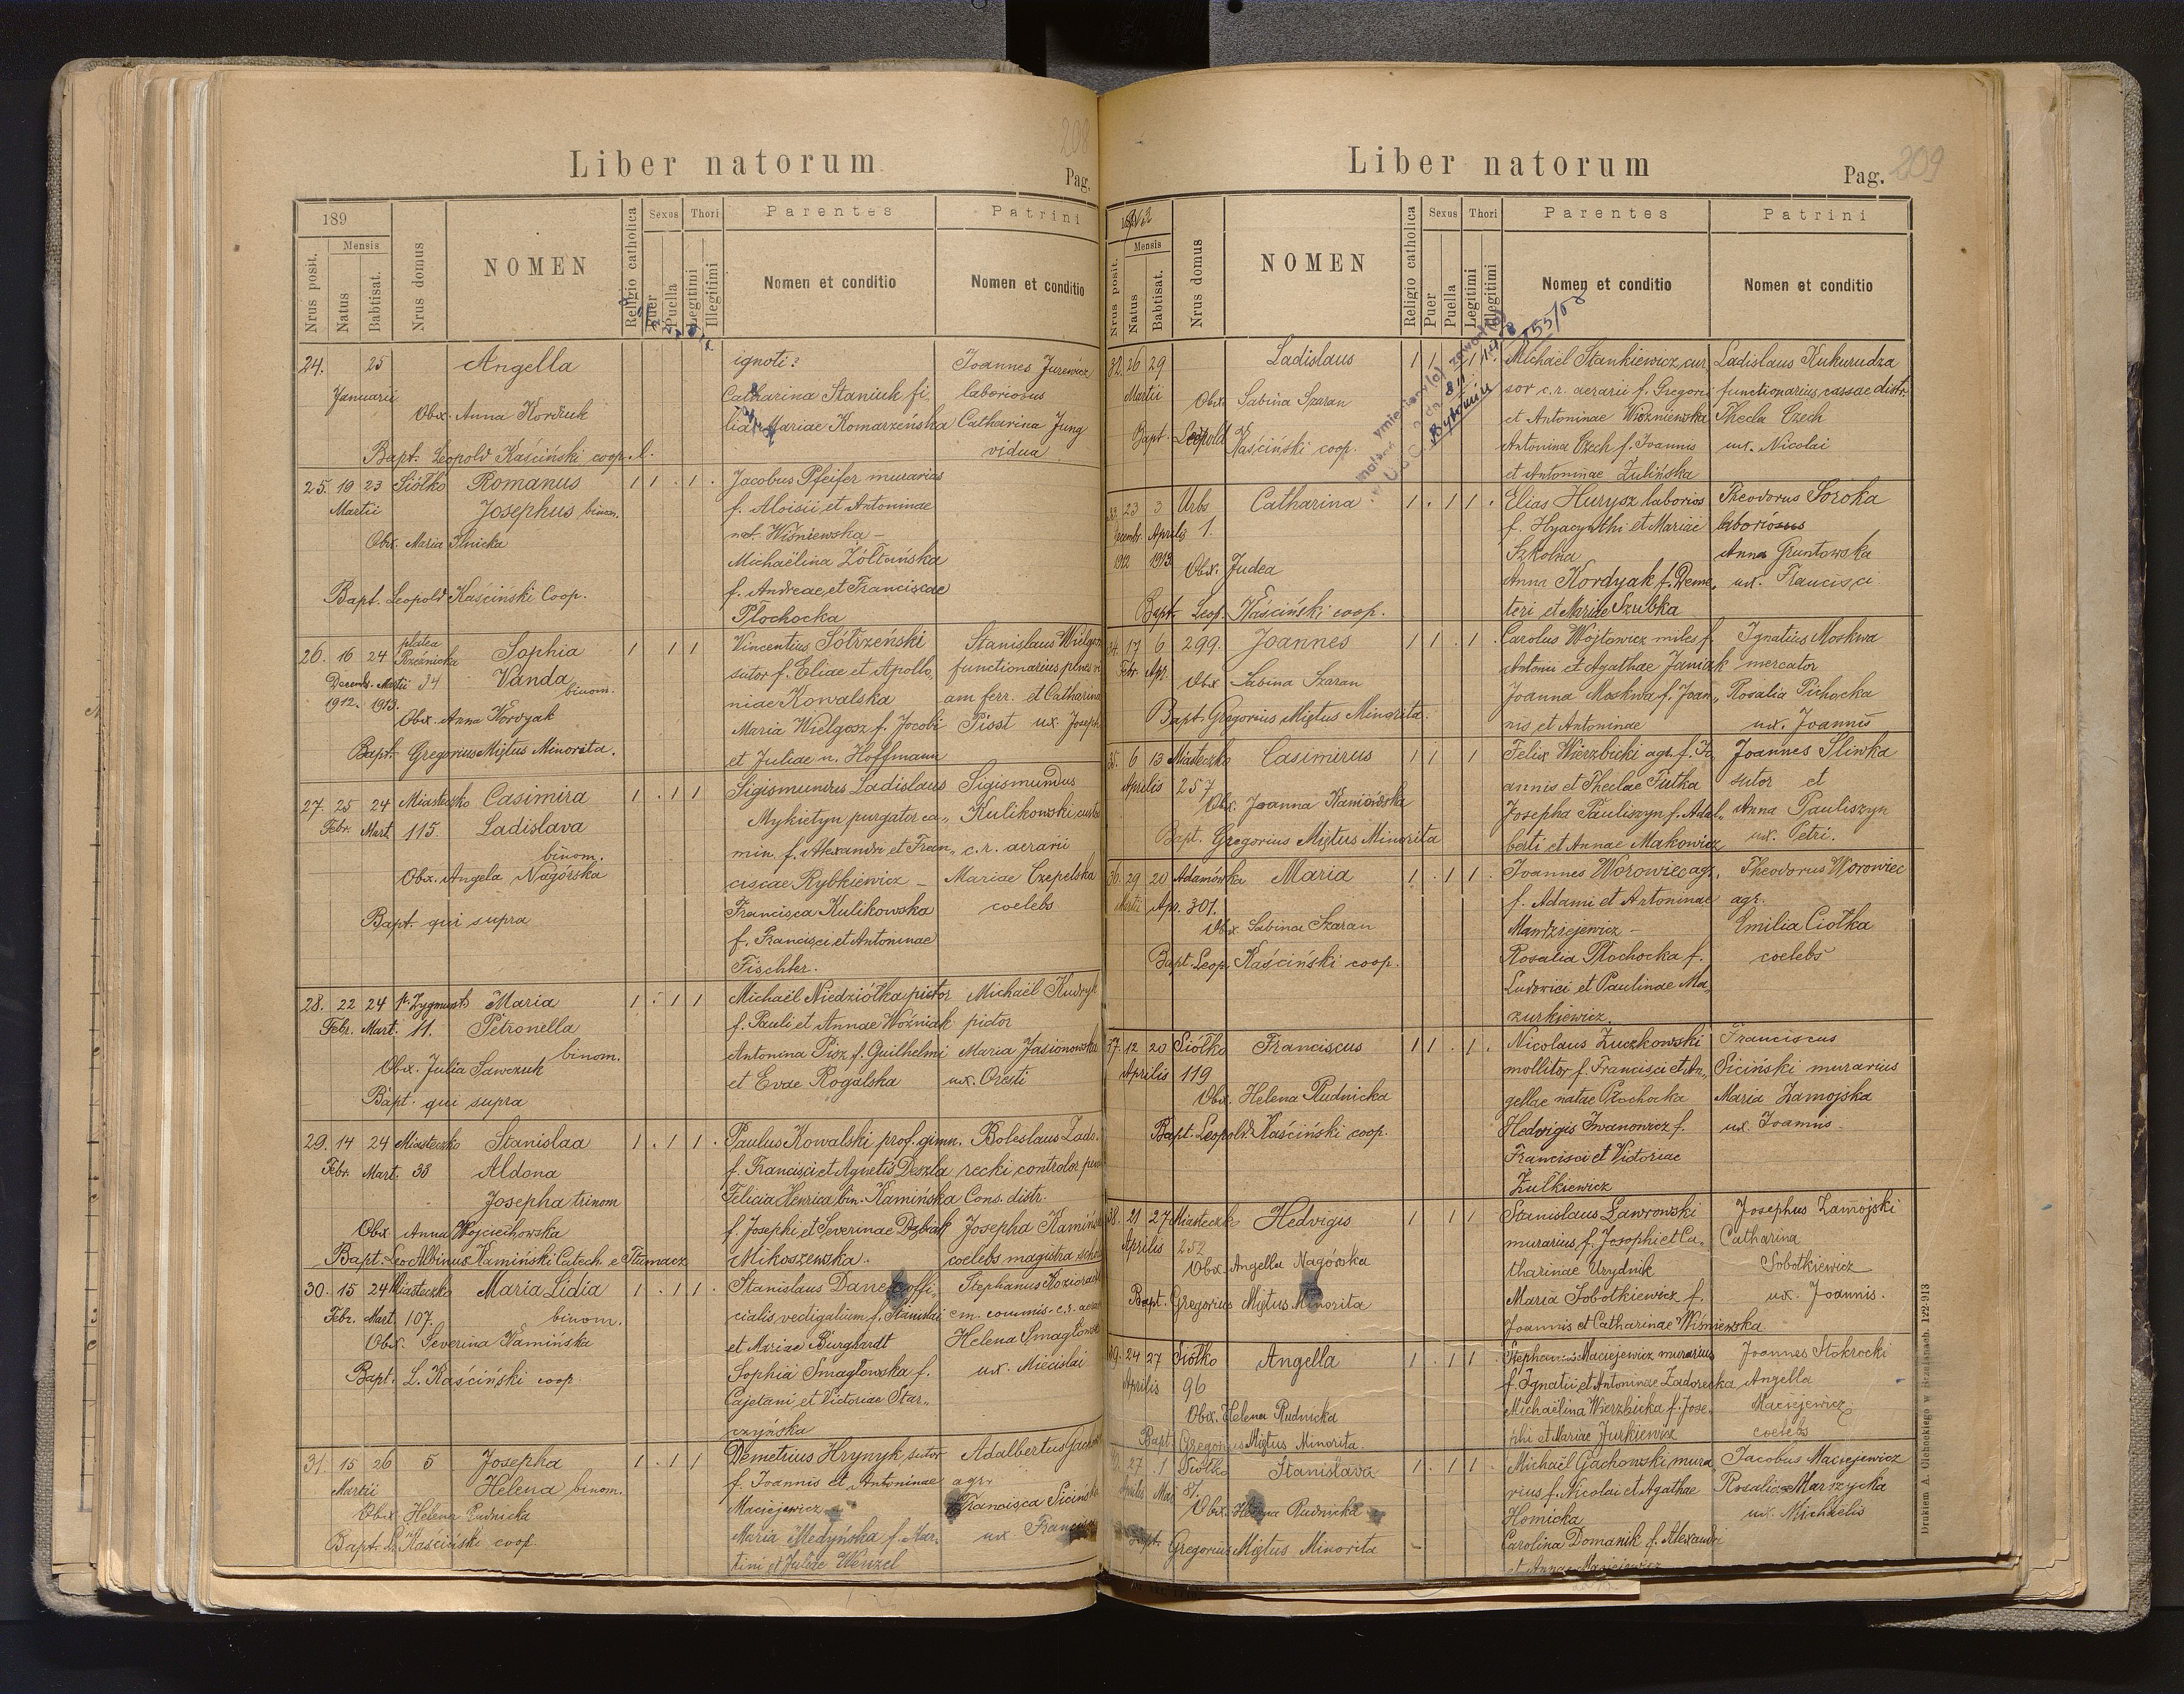 208
Liber natorum
Pag.
189
Nrus posit.
Mensis
Natus
Babtisat.
Nrus domus
NOMEN
Religio catholica
Sexus
Puer
Puella
Thori
Legitimi
Illegitimi
Parentes
Nomen et conditio
Patrini
Nomen et conditio
24. 25 Angella ignoti? Joannes Jurewicz
Januarii Catharina Staniuk fi. laboriosus
Obx. Anna Kordiuk lia Mariae Komarzeńska Catharina Jung
Bapt. Leopold Kaściński coop. vidua
25. 19 23 Siółko Romanus 1 1 . 1 . Jacobus Pfeifer murarius
Martii Josephus binom. f. Aloisii et Antoninae
Obx. Maria Ilnicka nat. Wiśniewska –
Michaëlina Żółtańska
f. Andreae et Franciscae
Bapt. Leopold Kaściński Coop.
Płochocka
26. 16 24 platea Rzeźnicka Sophia 1 . 1 1 Vincentius Sótrzeński Stanislaus Wielgosz
Decemb. Martii 34 Vanda binom. sutor f. Eliae et Apollo, functionarius
1912. 1913. niae Kowalska am ferr. et Catharina
Obx. Anna Kordyak Maria Wielgosz f. Jacobi Pisst ux. Josephi
Bapt. Gregorius Miętus Minorita. et Juliae n. Hoffmann
27. 25 24 Miasteczko Casimira 1 . 1 1 Sigismundus Ladislaus Sigismundus
Febr. Mart. 115. Ladislava Mykietyn purgator ca„ Kulikowski custo
binom. min. f. Alexandri et Fran„ c. r. aerarii
Obx. Angela Nagórska ciscae Rybkiewicz – Mariae Czepelska
Bapt. qui supra Francisca Kulikowska coelebs
f. Francisci et Antoninae
Fischler.
28. 22 24 Zygmunt Maria 1 . 1 1 Michaël Niedziółka pictor Michaël Kudryk
Febr. Mart. 11. Petronella f. Pauli et Annae Woźniak pictor
binom. Antonina Pisz f. Guilhelmi Maria Jasionowska
Obx. Julia Sawczuk et Evae Rogalska ux. Oresti
Bapt. qui supra
29. 14 24 Miasteczko Stanislaa 1 . 1 1 . Paulus Kowalski prof. gimn. Boleslaus Zado.
Febr. Mart. 38 Aldona f. Francisci et Agnetis Deszla recki controlor
Josepha trinom Felicia Henrica bin. Kamińska Cons. distr.
Obx Anna Wojciechowska f. Josephi et Severinae Josepha Kamińs
Bapt. Leo Albinus Kamiński Catech. e Tłumacz Mikoszewska. coelebs magistra schol
30. 15 24 Miasteczko Maria Lidia 1 . 1 1 . Stanislaus offi, Stephanus
Febr. Mart. 107. binom. cialis vectigalium f. Stanislai em. commis. c. r. aerarii
Obx. Severina Kamińska et Mariae Burghardt Helena Smagłowsk
Bapt. L. Kaściński coop. Sophia Smagłowska f. ux. Miecislai
Cajetani et Victoriae Star„
czyńska
31. 15 26 5 Josepha 1 . 1 1 Demetrius Hrynyk sutor Adalbertus Gachow
Martii Helena binom. f. Joannis et Antoninae agr.
Obx Helena Rudnicka Maciejewicz Francisca Sicińska
Bapt. L. Kaściński coop. Maria Medyńska f. Mar. ux. Francisci
tini et Juliae Wenzel
209
Liber natorum
Pag.
1913
Nrus posit.
Mensis
Natus
Babtisat.
Nrus domus
NOMEN
Religio catholica
Sexus
Puer
Puella
Thori
Legitimi
Illegitimi
Parentes
Nomen et conditio
Patrini
Nomen et conditio
Bytomiu
32. 26 29 Ladislaus 1 1 . 1 Michaël Stankiewicz cur Ladislaus Kukurudza
Martii Obx Sabina Szaran sor c. r. aerarii f. Gregorii functionarius cassae distr.
et Antoninae Woźniewska Thecla Czech
Bapt. Leopold Kaściński coop. Antonina Czech f. Joannis ux. Nicolai
et Antoninae Zulińska
33. 23 3 Urbs Catharina 1 . 1 1 . Elias Hurysz laborios Theodorus Soroka
Decembr. Aprilis 1. f. Hyacynthi et Mariae laboriosus
1912 1913 Obx. Judea Szkolna Anna Gruntowska
Anna Kordyak f. Deme, ux. Francisci
Bapt. Leop. Kaściński coop. teri et Mariae Szubka
34. 17 6 299. Joannes 1 1 . 1 . Carolus Wojtowicz miles f. Ignatius Moskwa
Febr. Apr. Antoni et Agathae Janiak mercator
Obx Sabina Szaran Joanna Moskwa f. Joan„ Rosalia Pichocka
Bapt. Gregorius Miętus Minorita. nis et Antoninae ux. Joannis
35. 6 13 Miasteczko Casimirus 1 1 1 Felix Wierzbicki agr. f. Jo Joannes Sliwka
Aprilis 257 annis et Theclae Futka sutor et
Obx. Joanna Kamińska Josepha Pauliszyn f. Adal„ Anna Pauliszyn
Bapt. Gregorius Miętus Minorita berti et Annae Makowicz ux. Petri.
36. 29 20 Adamówka Maria 1 . 1 1 . Joannes Worowiec agr. Theodorus Worowiec
Martii Apr. 301. f. Adami et Antoninae agr.
Obx Sabina Szaran Mandziejewicz – Emilia Ciołka
Bapt. Leop. Kaściński coop. Rosalia Płochocka f. coelebs
Ludovici et Paulinae Ma„
zurkiewicz.
37. 12 20 Siółko Franciscus 1 1 . 1 . Nicolaus Zuczkowski Franciscus
Aprilis 119 mollitor f. Francisci et An„ Siciński murarius
Obx Helena Rudnicka gellae natae Płochocka Maria Zamojska
Bapt. Leopold Kaściński coop. Hedvigis Iwanowicz f. ux. Joannis.
Francisci et Victoriae
Żulkiewicz
38. 21 27 Miasteczko Hedvigis 1 1 1 Stanislaus Lawrowski Josephus Zamojski
Aprilis 252 murarius f. Josephi et Ca„ Catharina
Obx. Angella Nagórska tharinae Urydnik Sobotkiewicz
Bapt. Gregorius Miętus Minorita Maria Sobotkiewicz f. ux. Joannis.
Joannis et Catharinae Wiśniewska.
39. 24 27 Siółko Angella 1 . 1 1 . Stephanus Maciejewicz murarius Joannes Stokrocki
Aprilis 96 f. Ignatii et Antoninae Zadorecka Angella
Obx. Helena Rudnicka Michaëlina Wierzbicka f. Jose. Maciejewicz
Bapt. Gregorius Miętus Minorita. phi et Mariae Jurkiewicz coelebs
27 1 Siółko Stanislava 1 . 1 1 . Michaël Gachowski mura, Jacobus Maciejewicz
Aprilis Maj rius f. Nicolai et Agathae Rosalia Marszycka
Obx. Helena Rudnicka Homicka ux. Michaelis
Bapt. Gregorius Miętus Minorita Carolina Domanik f. Alexandri
et Annae Maciejewicz
Drukiem A. Olchockiego w Brzezanach. 122-913